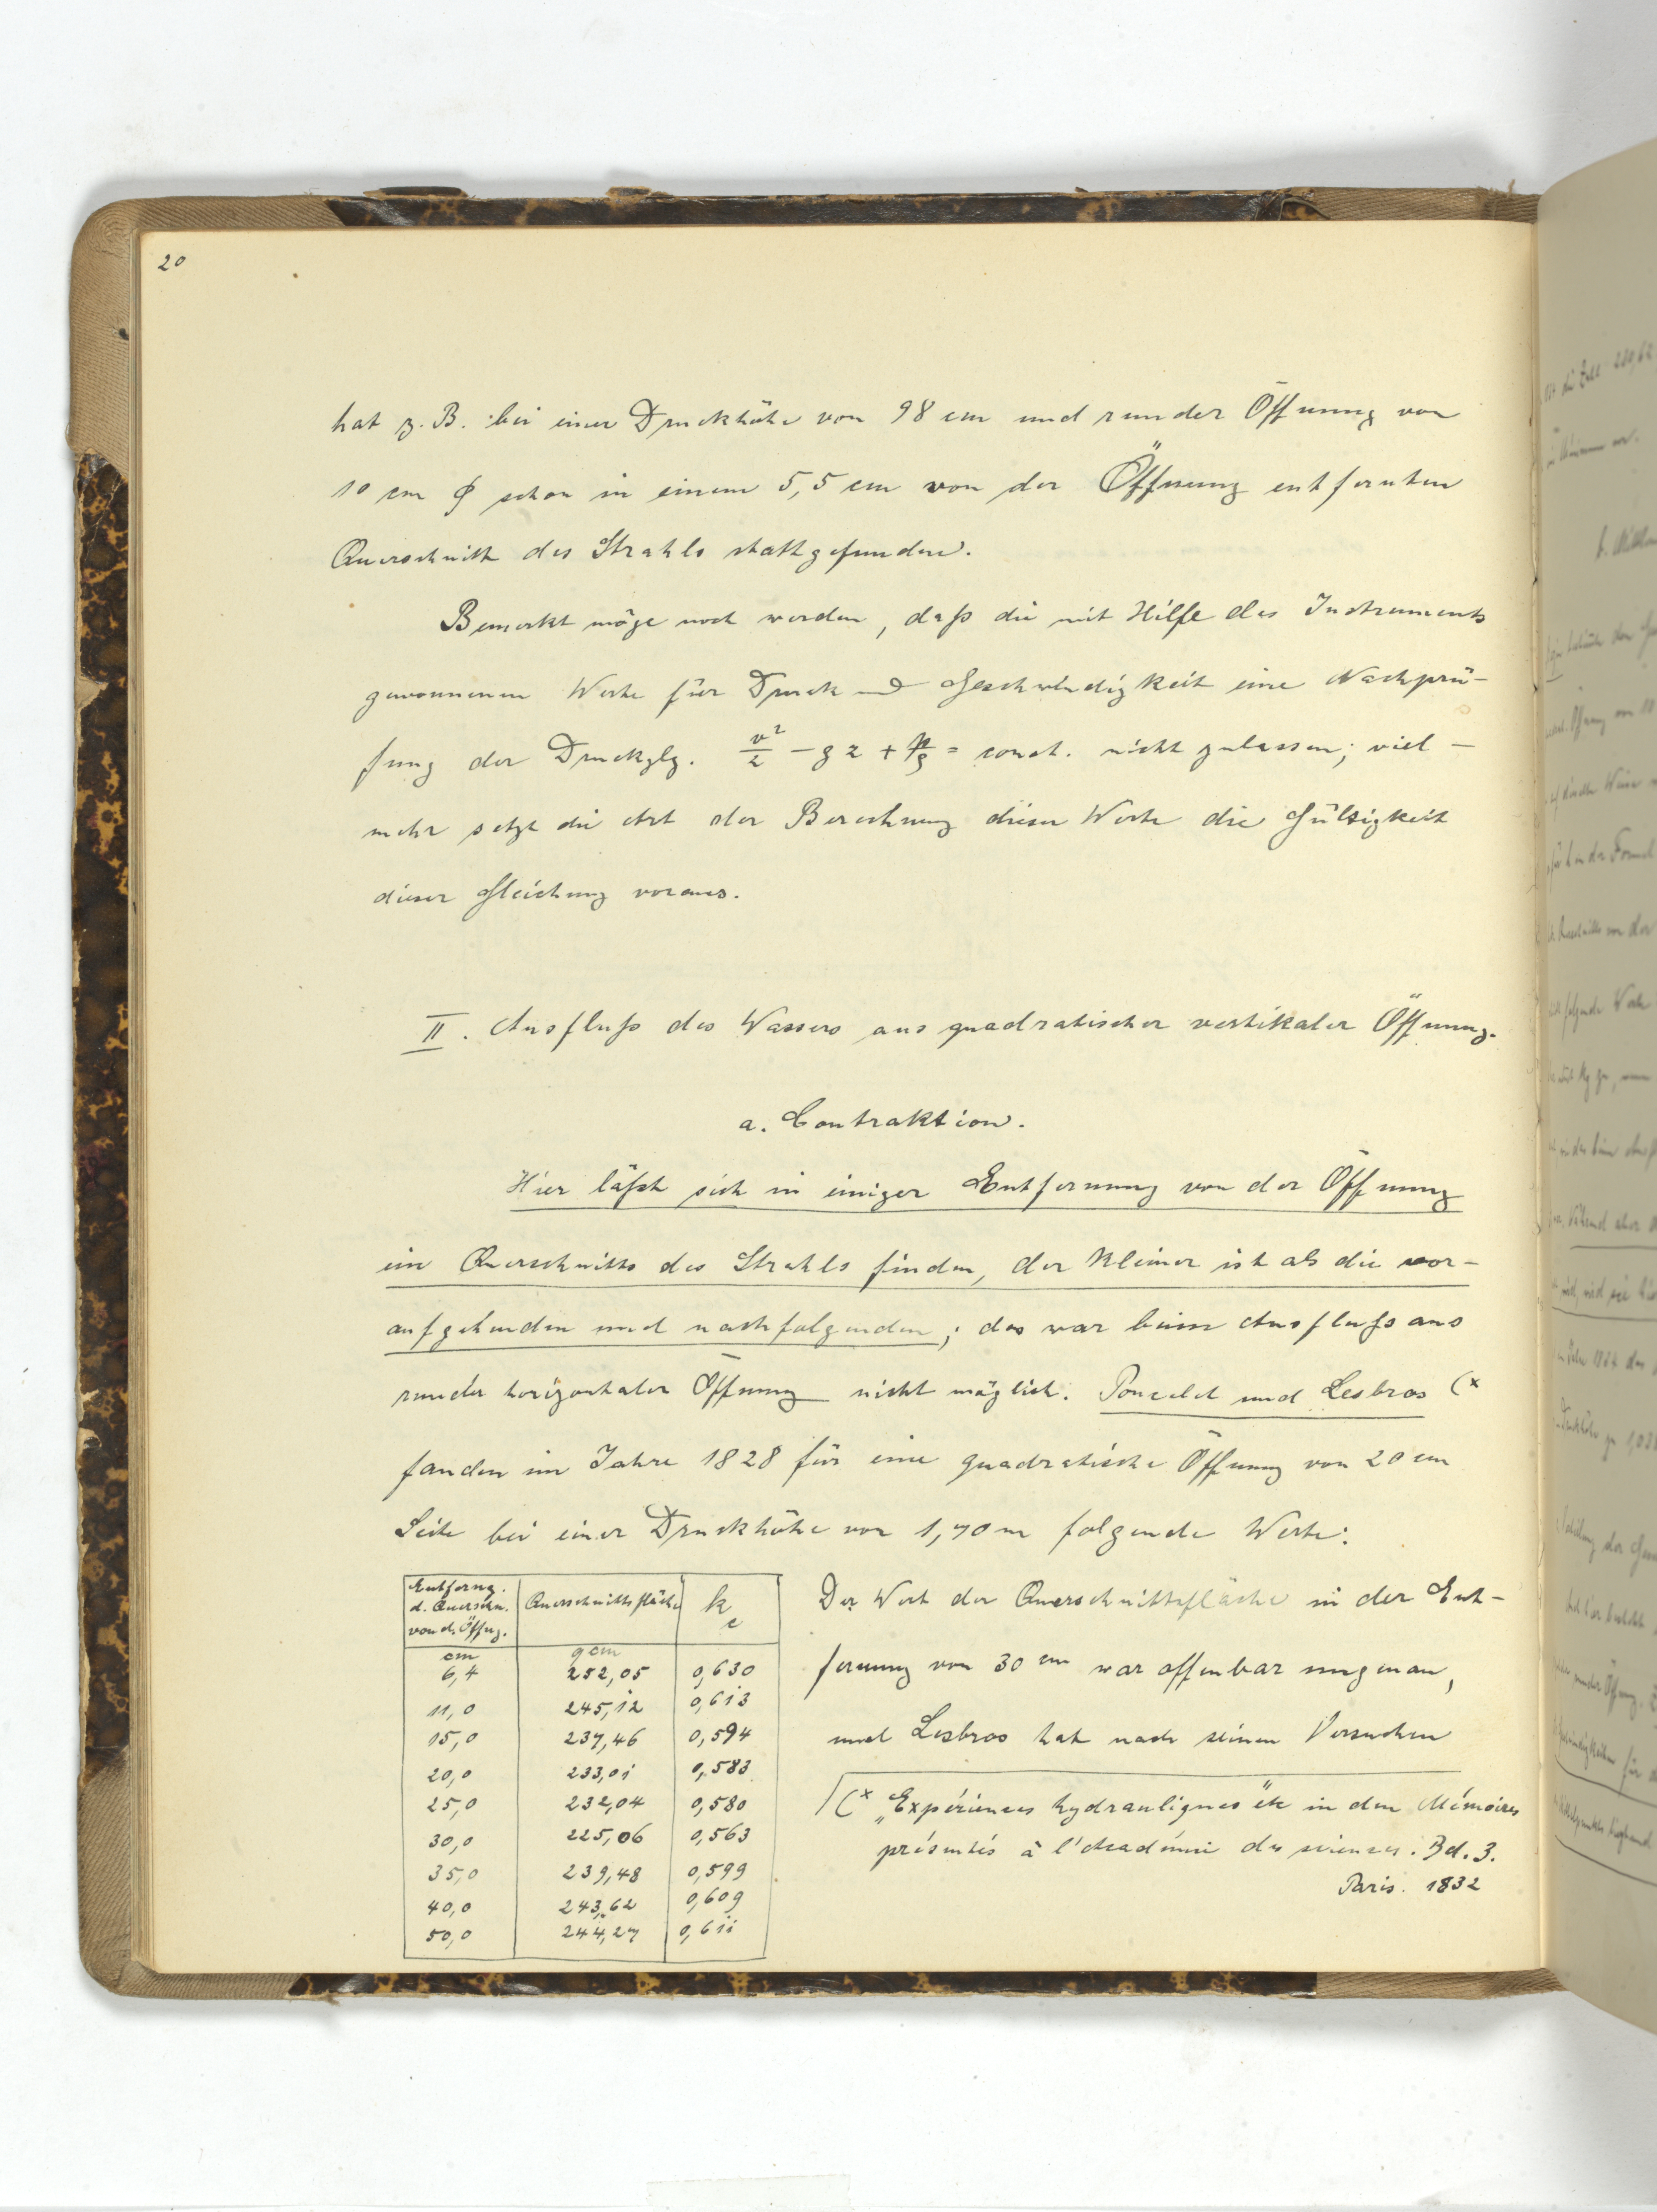 20
hat z. B. bei einer Druckhöhe von 98 cm und runder Öffnung von
10 cm ϕ schon in einem 5,5 cm von der Öffnung entfernten
Querschnitt des Strahls stattgefunden.
Bemerkt möge noch werden, daß die mit Hilfe des Instruments
gewonnenen Werte für Druck und Geschwindigkeit eine Nachprü-
fung der Druckglg. v²/2 - gz + p/ϱ = const. nicht zulassen; viel-
mehr setzt die Art der Berechnung dieser Werte die Gültigkeit
dieser Gleichung voraus.
II. Ausfluß des Wassers aus quadratischer vertikaler Öffnung.
a. Contraktion.
Hier läßt sich in einiger Entfernung von der Öffnung
ein Querschnitts des Strahls finden, der kleiner ist als die vor-
aufgehenden und nachfolgenden; das war beim Ausfluß aus
runder horizontaler Öffnung nicht möglich. Poncelet und Lesbros (x
fanden im Jahre 1828 für eine quadratische Öffnung von 20 cm
Seite bei einer Druckhöhe von 1,70 m folgende Werte:
Entferng. d. Querschn. von d. Öffng. Querschnittsfläche kc
cm qcm
6,4 252,05 0,630
11,0 245,12 0,613
15,0 237,46 0,594
20,0 233,01 0,583
25,0 232,04 0,580
30,0 225,06 0,563
35,0 239,48 0,599
40,0 243,62 0,609
50,0 244,27 0,611
Der Wert der Querschnittsfläche in der Ent-
fernung von 30 cm war offenbar ungenau,
und Lesbros hat nach seinen Versuchen
(x „Expériences hydrauliques" etc in den Mémoires
présentés à l'Académie des sciences. Bd. 3.
Paris. 1832